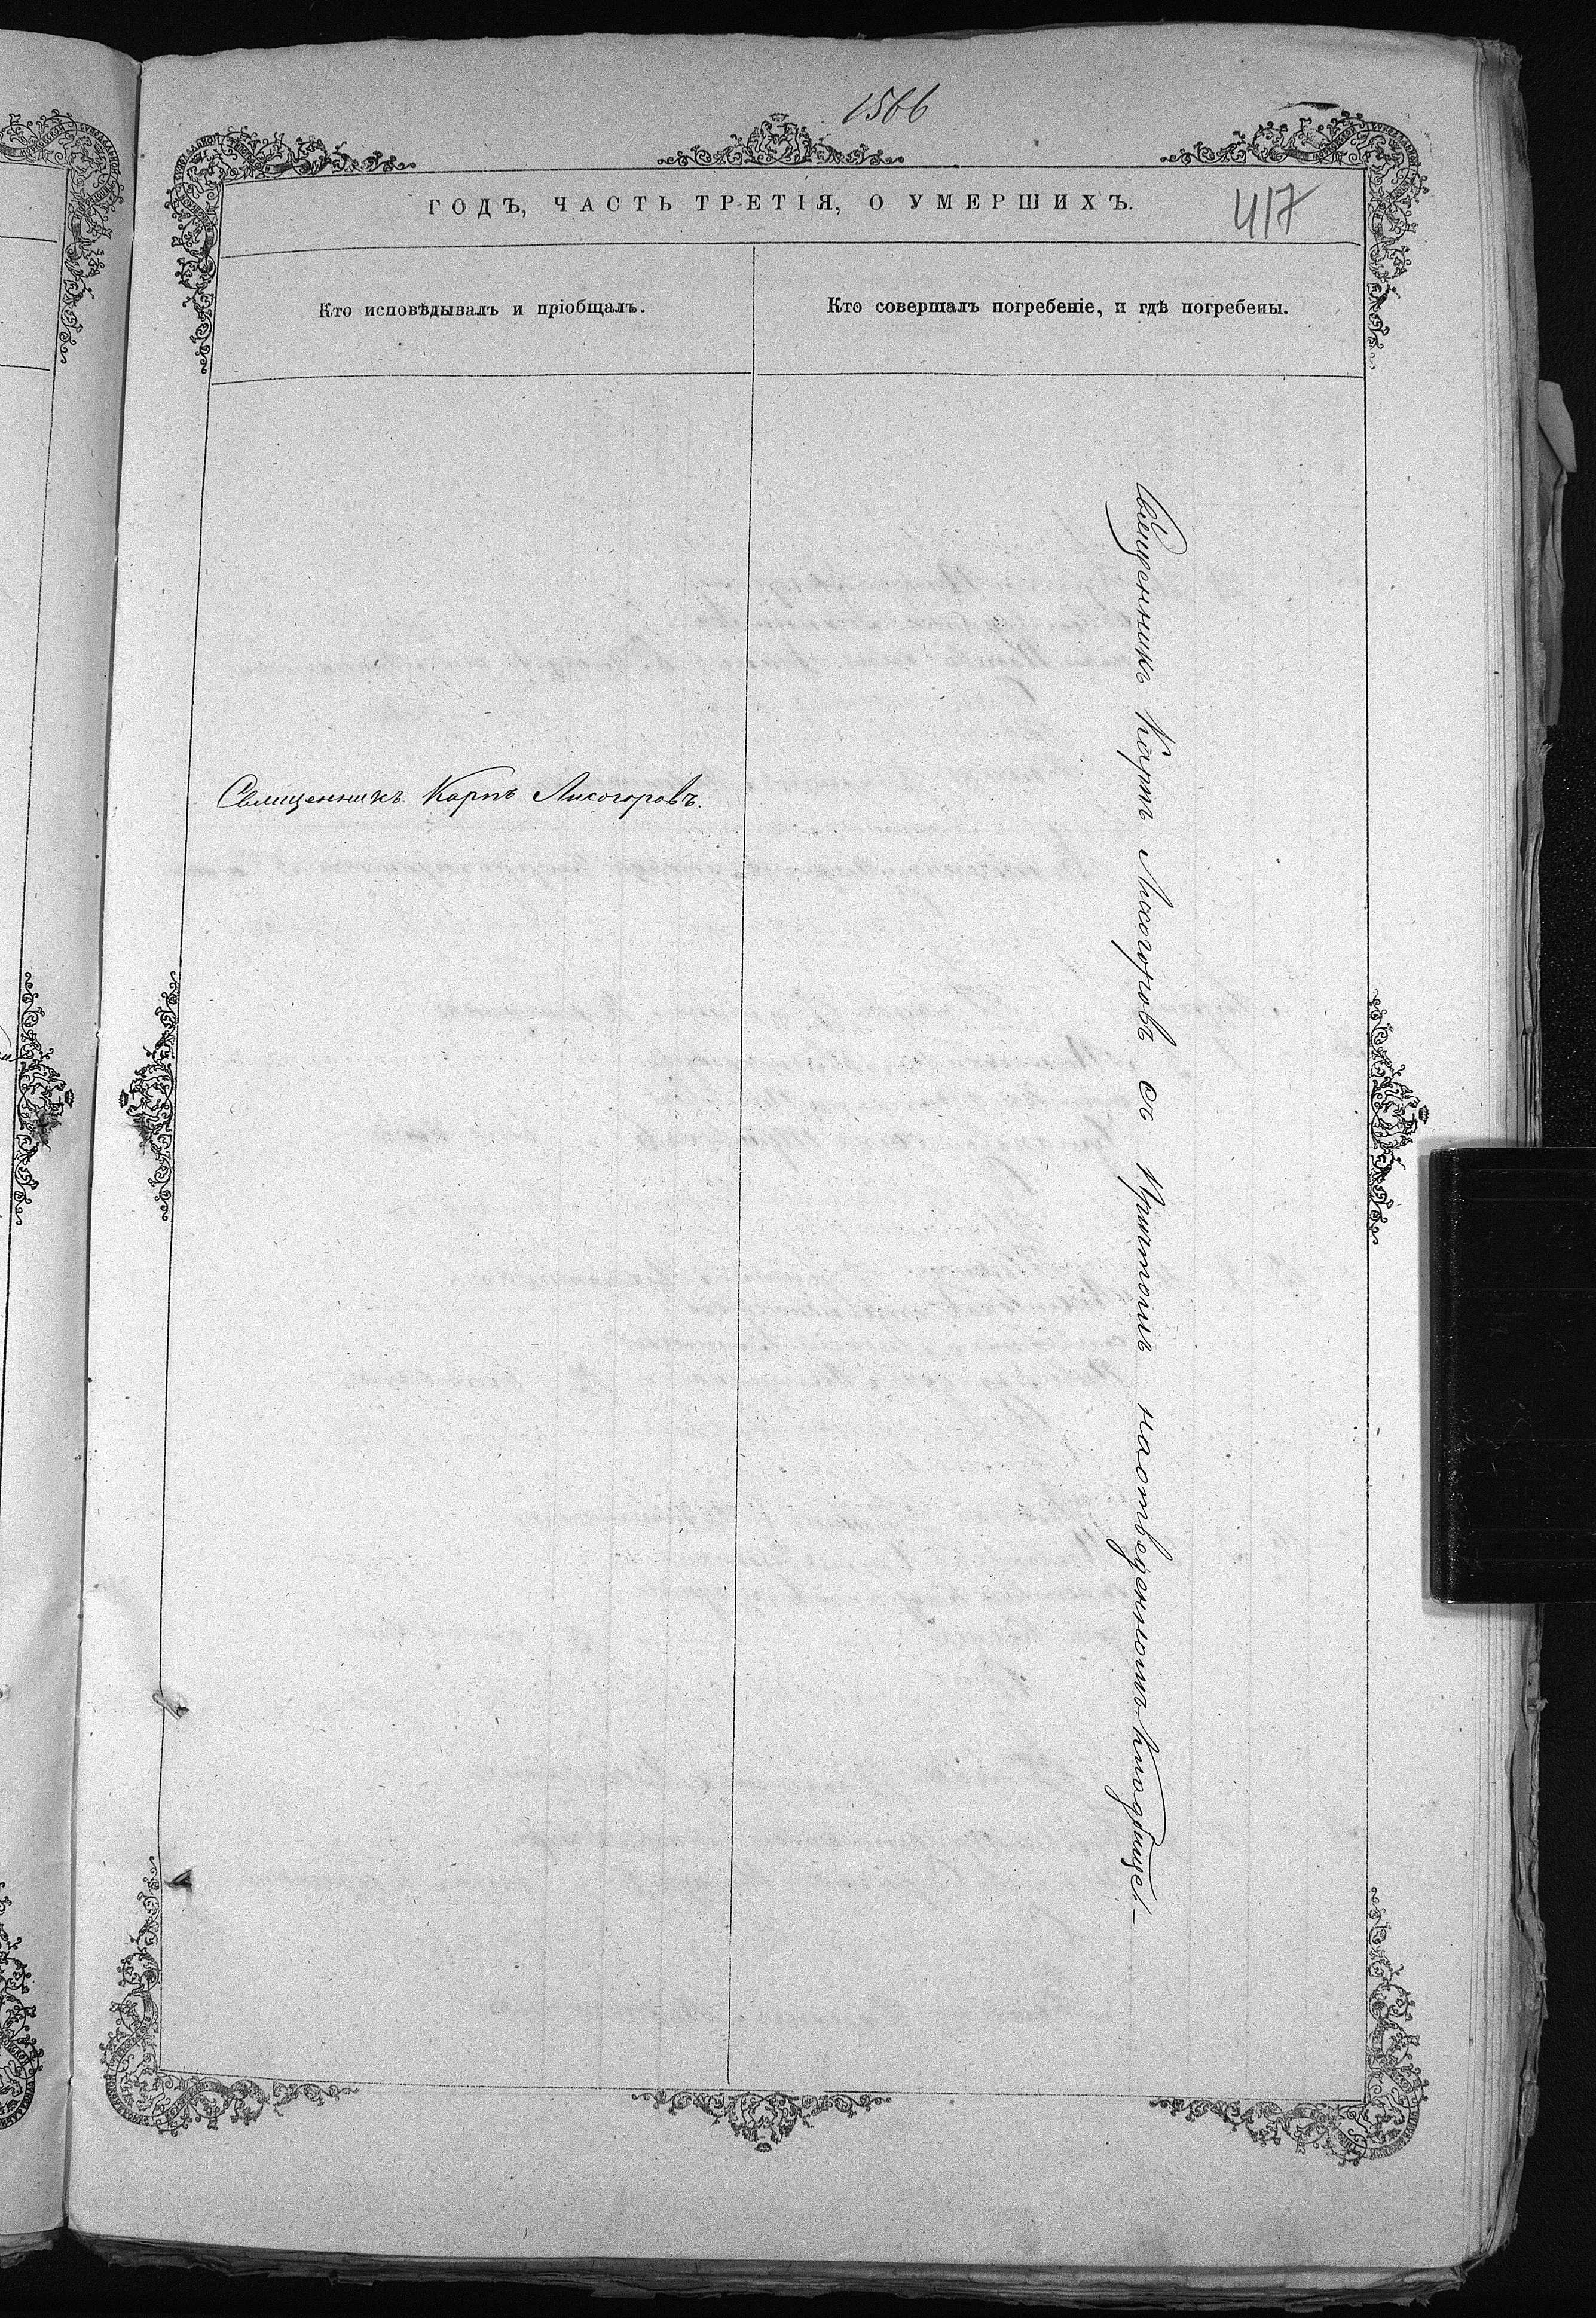 1566
ГОДЪ, ЧАСТЬ ТРЕТІЯ, О УМЕРШИХЪ.
417
Кто исповѣдывалъ и пріобщалъ.
Кто совершалъ погребеніе, и гдѣ погребены.
Священникъ Карпъ Лисогоровъ.
Священникъ Карпъ Лисогоровъ съ Причтомъ на отведенномъ кладбищѣ.